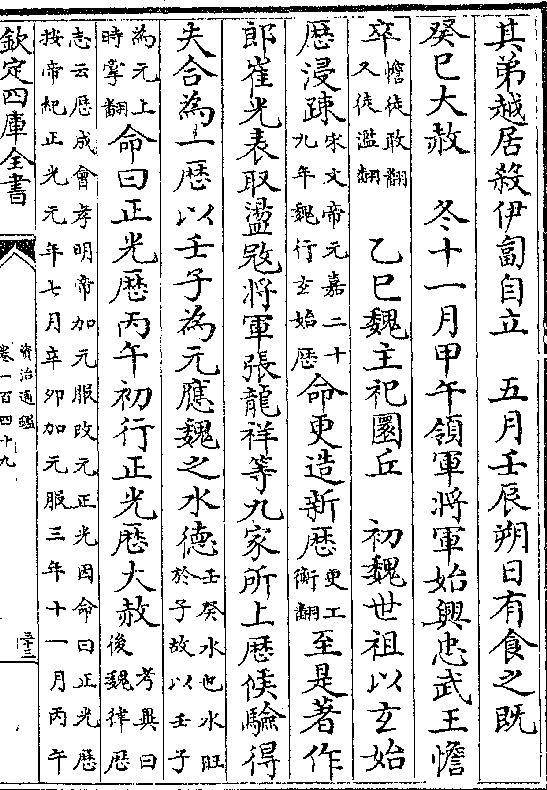 其弟越居殺伊匐自立　五月壬辰朔日有食之既
癸巳大赦　冬十一月甲午領軍將軍始興忠武王憺
卒憺徒敢翻又徒濫翻　乙巳魏主祀圜丘　初魏世祖以玄始
歴浸疎宋文帝元嘉二十九年魏行玄始歴命更造新歴更工衡翻至是著作
郎崔光表取盪㓂將軍張龍祥等九家所上歴候驗得
失合為一歴以壬子為元應魏之水德壬癸水也水旺於子故以壬子
為元上時掌翻命曰正光歴丙午初行正光歴大赦考異曰後魏律歴
志云歴成會孝明帝加元服改元正光因命曰正光歴
按帝紀正光元年七月辛卯加元服三年十一月丙午
欽定四庫全書
資治通鑑
卷一百四十九
三十三